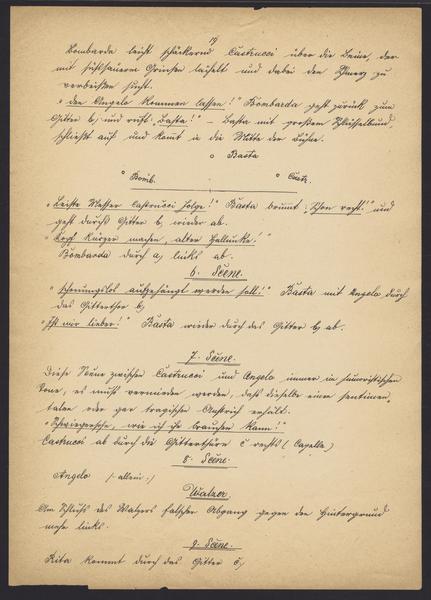 19
Bombarda leicht schäkernd Castrucci über die Beine, der
mit süßsauerm Grinsen lächelt und dabei den Schmerz zu
verbeißen sucht.
„den Angelo kommen lassen!" Bombarda geht zurück zum
Gitter b, und ruft „Basta!" – Basta mit großem Schlüsselbund
schließt auf und kommt in die Mitte der Bühne.
Basta
Bomb. Castr.
„Leiste Messer Castrucci Folge!" Basta brummt: „Schon recht!" und
geht durchs Gitter b, wieder ab.
„Kopf kürzer machen, alter Hallunke!"
Bombarda durch a, links ab.
6. Scene.
„schonungslos aufgehängt werden soll!" Basta mit Angelo durch
das Gitterthor b,
„Ist mir lieber!" Basta wieder durch das Gitter b, ab.
7. Scene.
Diese Scene zwischen Castrucci und Angelo immer in humoristischem
Tone, es muß vermieden werden, daß dieselbe einen sentimen-
talen oder gar tragischen Anstrich erhält.
„Schwiegersohn, wie ich ihn brauchen kann!"
Castrucci ab durch die Gitterthüre c rechts (Capelle)
8. Scene.
Angelo /: allein :/
Walzer.
Am Schluß des Walzers falscher Abgang gegen den Hintergrund
mehr links.
9. Scene.
Rita kommt durch das Gitter c,